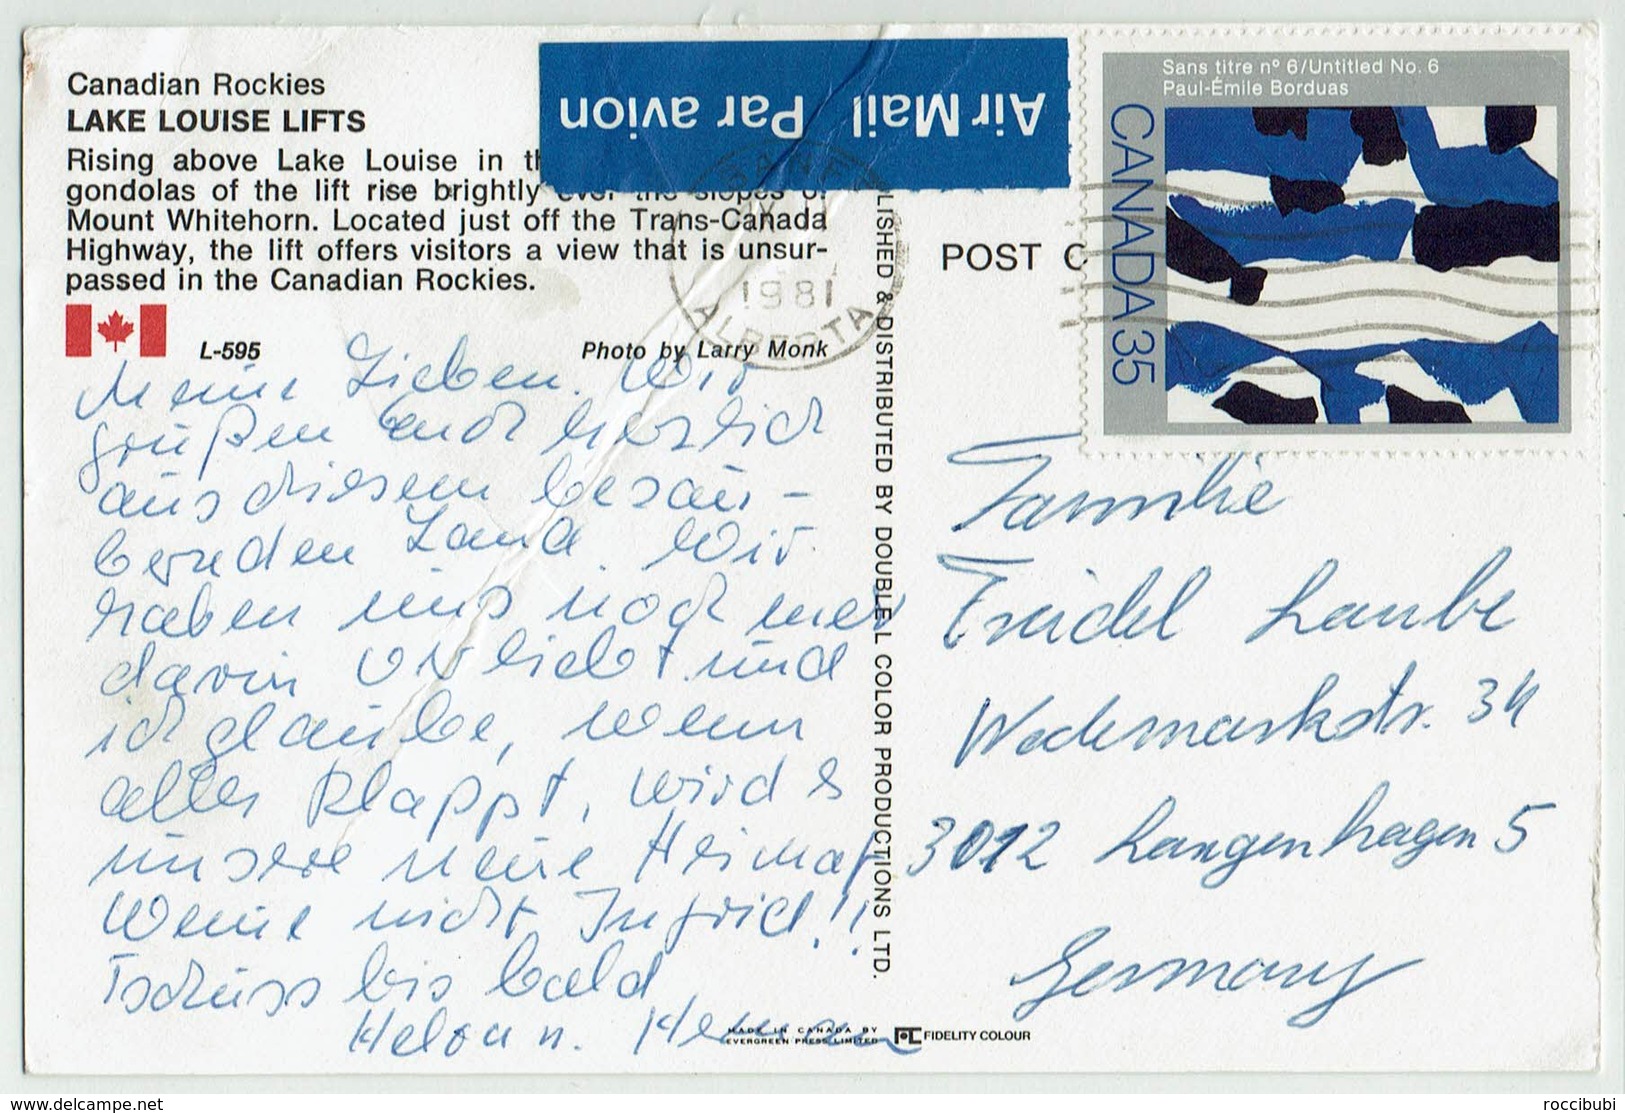 Canadian Rockies
LAKE LOUISE LIFTS
Rising above Lake Louise in th
gondolas of the lift rise brightly over the slopes of
Mount Whitehorn. Located just off the Trans-Canada
Highway, the lift offers visitors a view that is unsur-
passed in the Canadian Rockies.
L-595
Photo by Larry Monk
Air Mail Par avion
1981
ALBERTA
LISHED & DISTRIBUTED BY DOUBLE L COLOR PRODUCTIONS LTD.
POST C
Sans titre nº 6/Untitled No. 6
Paul-Émile Borduas
CANADA 35
Meine Lieben. Wir
grüßen Euch herzlich
aus diesem bezau-
bernden Land. Wir
haben uns noch mehr
darin verliebt und
ich glaube, wenn
alles klappt, wird es
unsere neue Heimat
Weine nicht Ingrid!!
Tschüss bis bald
Helga u.
Familie
Friedel Laube
Wedemarkstr. 34
3012 Langenhagen 5
Germany
MADE IN CANADA BY
EVERGREEN PRESS LIMITED
FC FIDELITY COLOUR
www.delcampe.net
roccibubi